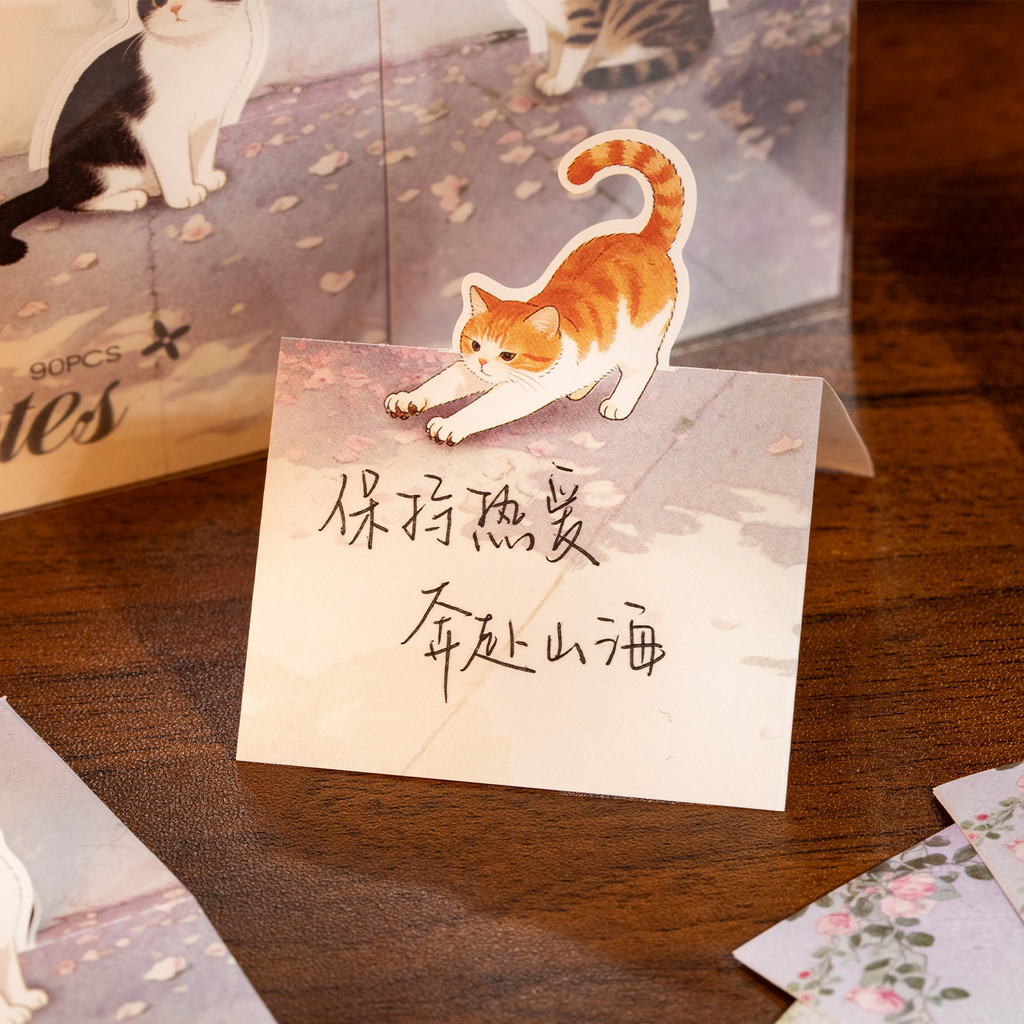 90PCS
保持热爱
奔赴山海